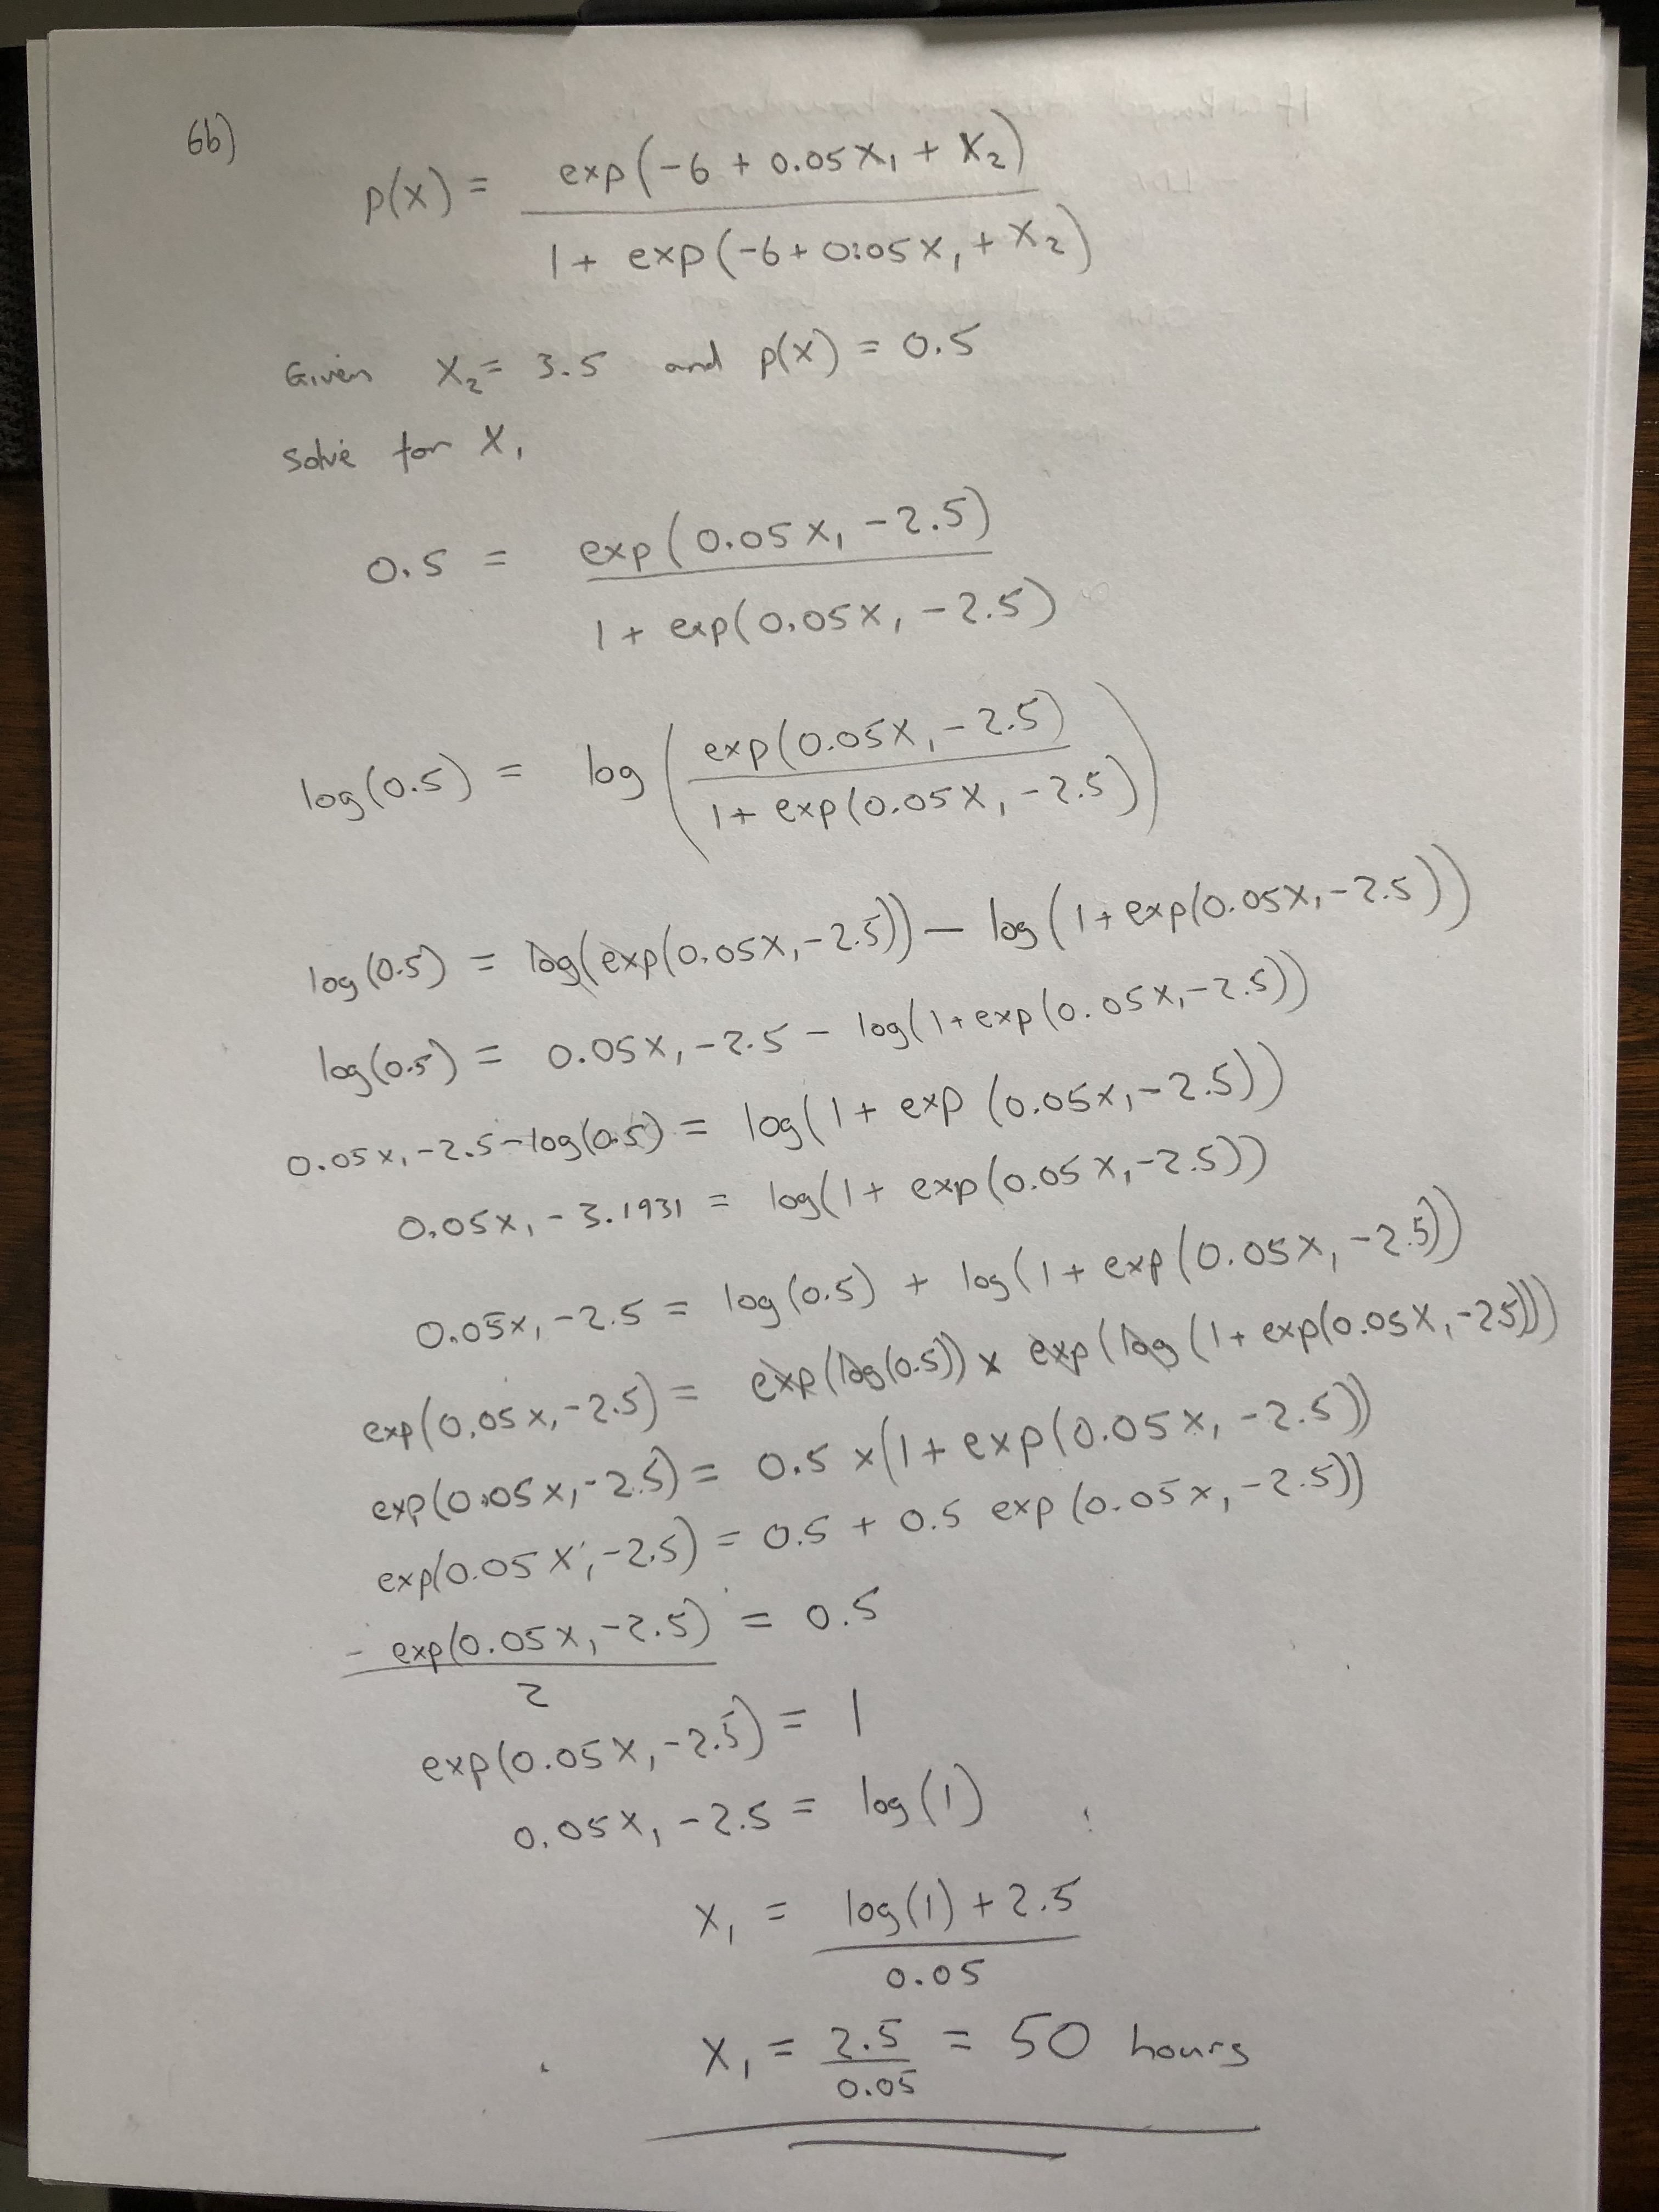 6b)
p(x) = exp(-6 + 0.05X₁ + X₂) / 1 + exp(-6 + 0.05X₁ + X₂)
Given X₂ = 3.5 and p(x) = 0.5
Solve for X₁
0.5 = exp(0.05X₁ - 2.5) / 1 + exp(0.05X₁ - 2.5)
log(0.5) = log(exp(0.05X₁ - 2.5) / 1 + exp(0.05X₁ - 2.5))
log(0.5) = log(exp(0.05X₁ - 2.5)) - log(1 + exp(0.05X₁ - 2.5))
log(0.5) = 0.05X₁ - 2.5 - log(1 + exp(0.05X₁ - 2.5))
0.05X₁ - 2.5 - log(0.5) = log(1 + exp(0.05X₁ - 2.5))
0.05X₁ - 3.1931 = log(1 + exp(0.05X₁ - 2.5))
0.05X₁ - 2.5 = log(0.5) + log(1 + exp(0.05X₁ - 2.5))
exp(0.05X₁ - 2.5) = exp(log(0.5)) x exp(log(1 + exp(0.05X₁ - 2.5)))
exp(0.05X₁ - 2.5) = 0.5 x (1 + exp(0.05X₁ - 2.5))
exp(0.05X₁ - 2.5) = 0.5 + 0.5 exp(0.05X₁ - 2.5))
- exp(0.05X₁ - 2.5) / 2 = 0.5
exp(0.05X₁ - 2.5) = 1
0.05X₁ - 2.5 = log(1)
X₁ = log(1) + 2.5 / 0.05
X₁ = 2.5 / 0.05 = 50 hours